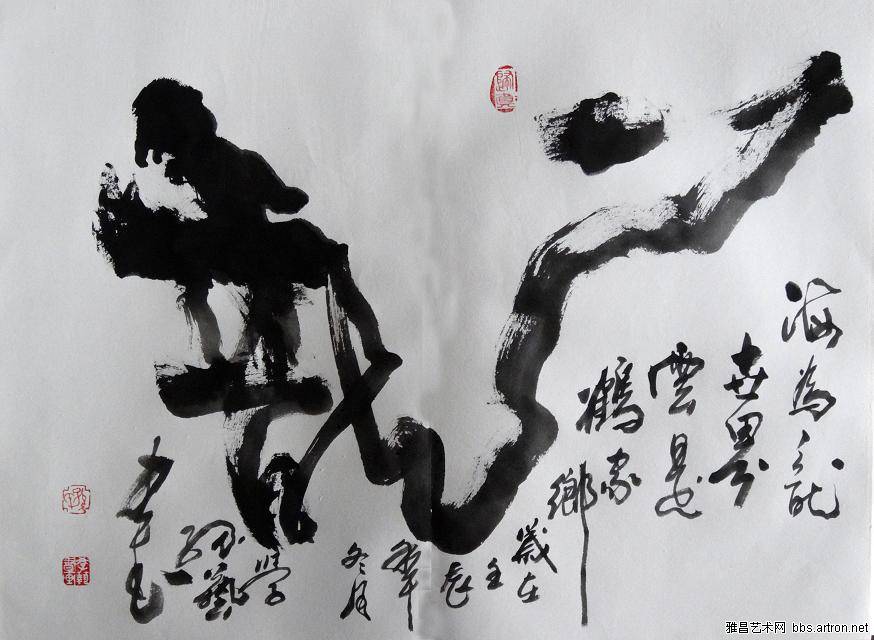 龍
海為龍
世界
雲是
鶴家
鄉
歲在
壬辰
年
冬月
學
藝
書
雅昌艺术网 bbs.artron.net